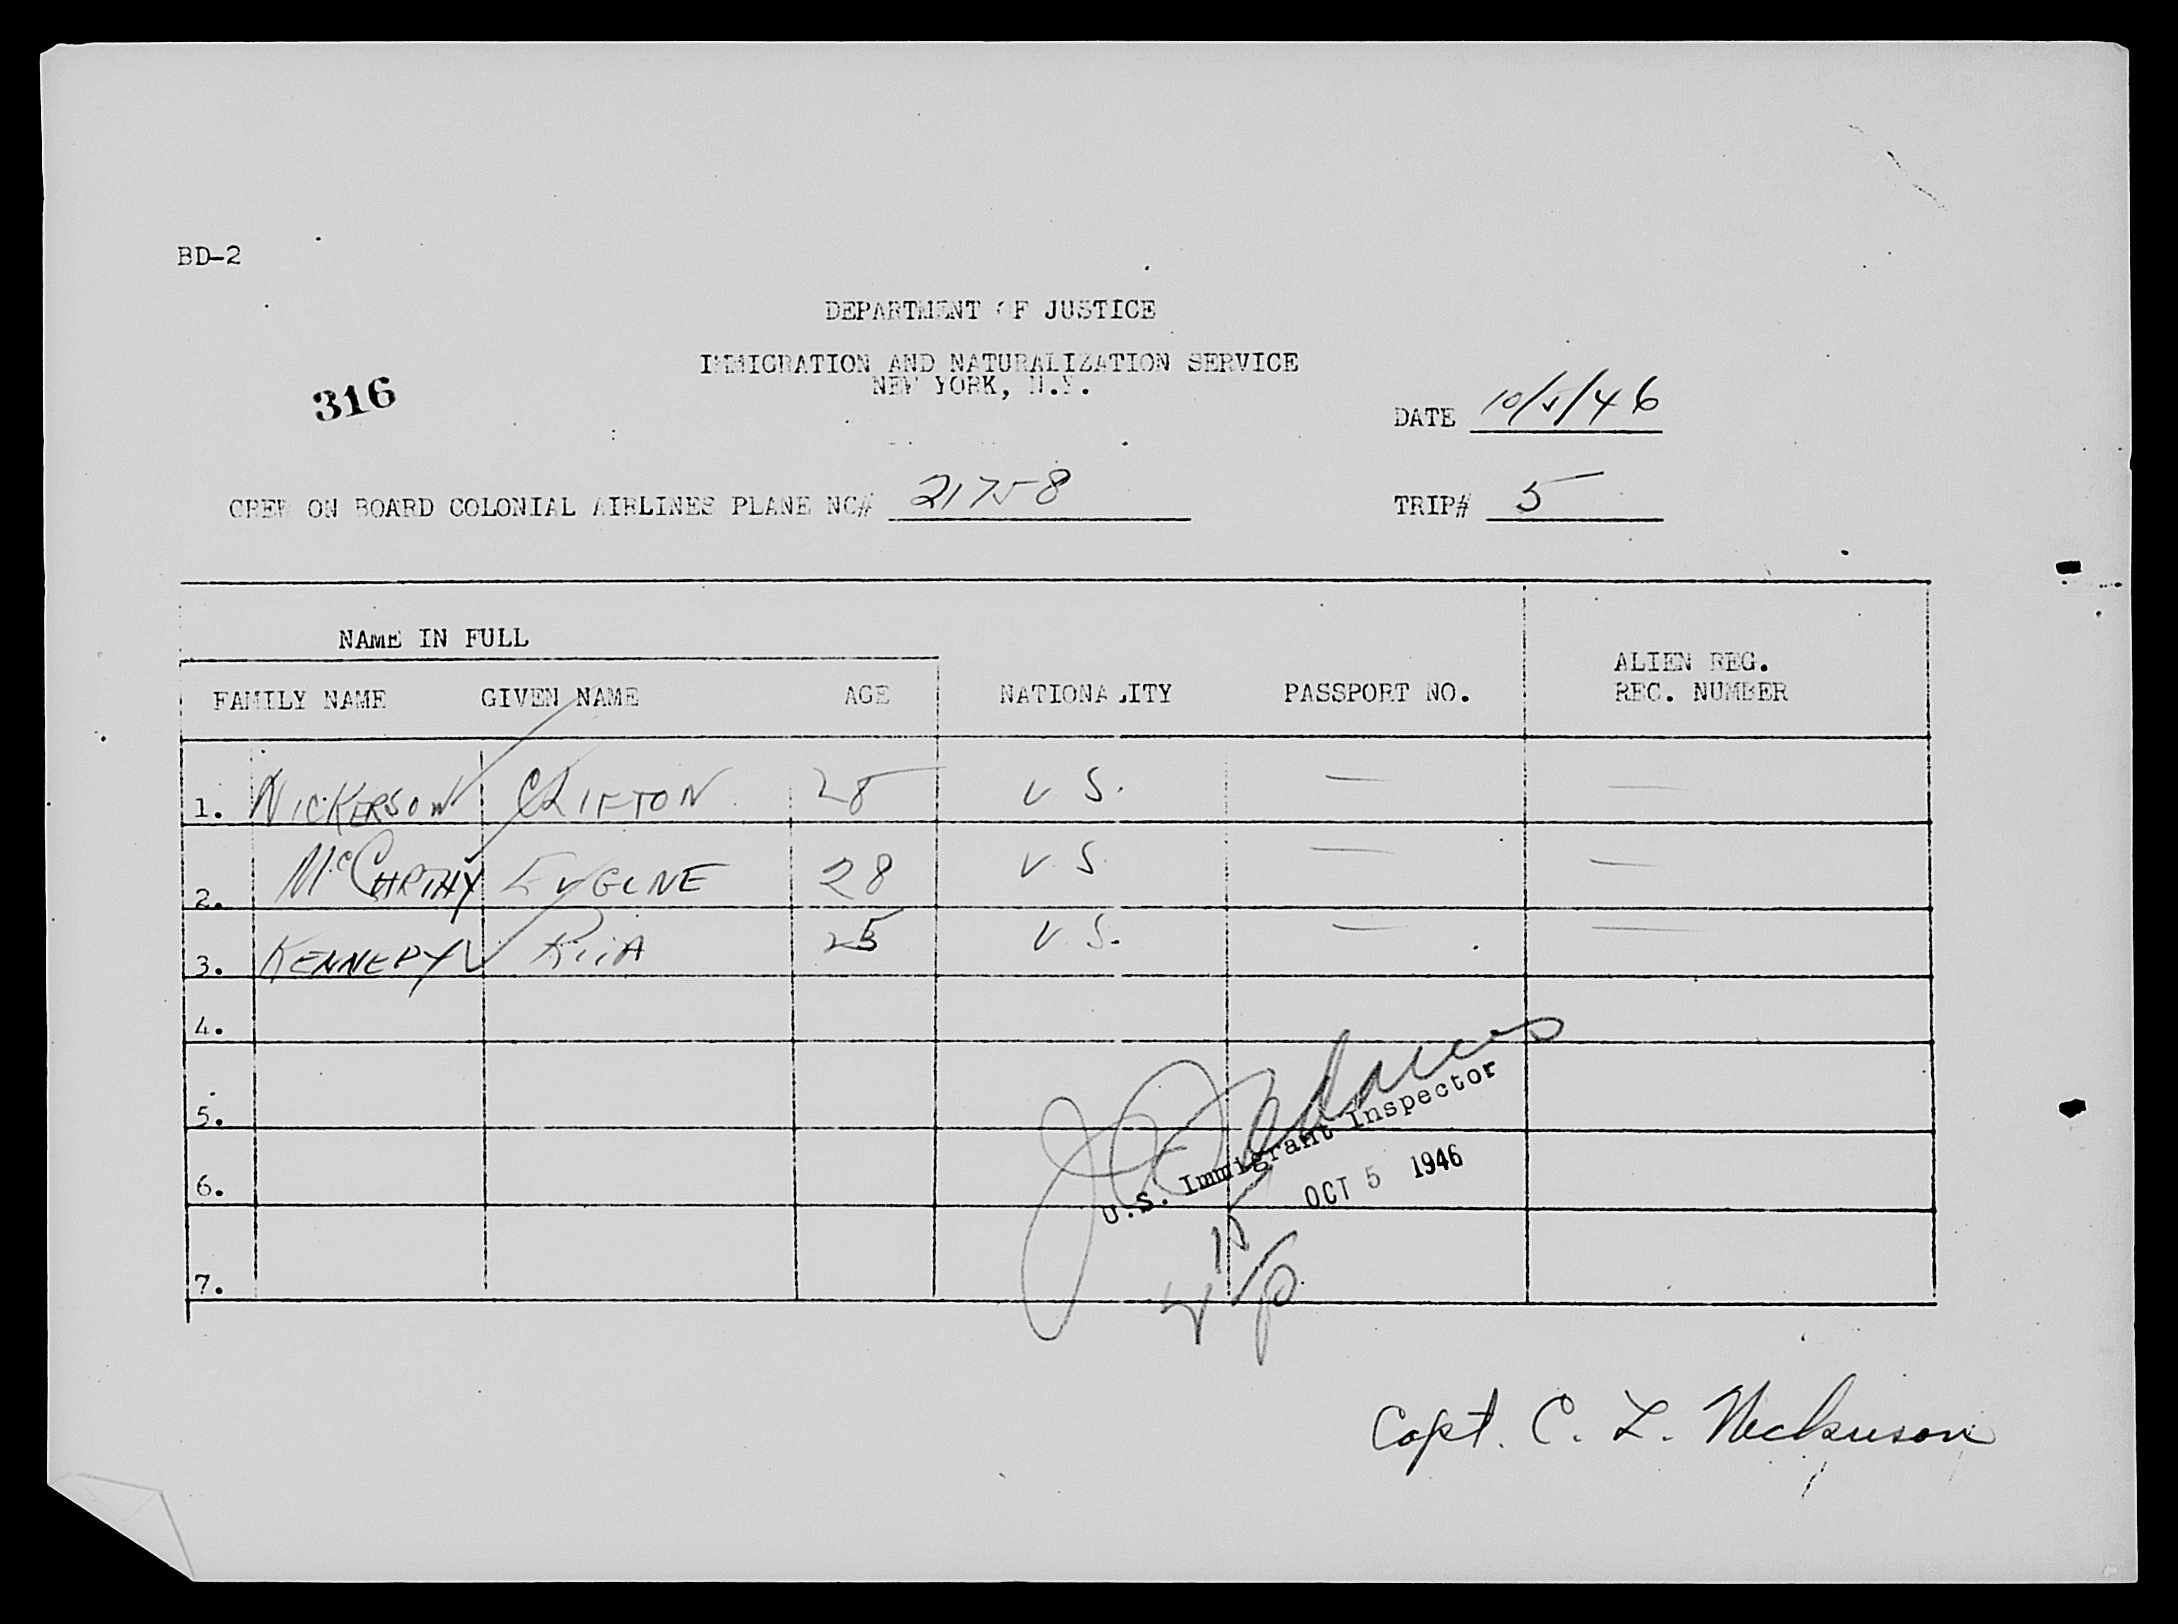 BD-2
DEPARTMENT OF JUSTICE
IMMIGRATION AND NATURALIZATION SERVICE
NEW YORK, N.Y.
316
DATE 10/5/46
CREW ON BOARD COLONIAL AIRLINES PLANE NC# 21758
TRIP# 5
NAME IN FULL
FAMILY NAME GIVEN NAME AGE NATIONALITY PASSPORT NO. ALIEN REG. REC. NUMBER
1. NICKERSON CLIFTON 28 U.S. — —
2. McCARTHY EUGENE 28 U.S. — —
3. KENNEDY RITA 25 U.S. — —
4.
5.
6.
7.
U.S. Immigrant Inspector
OCT 5 1946
Capt. C. L. Nickerson